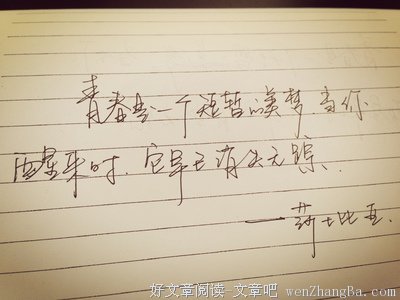 青春是一个短暂的美梦,当你
醒来时,它早已消失无踪.
——莎士比亚.
好文章阅读-文章吧 wenZhangBa.com